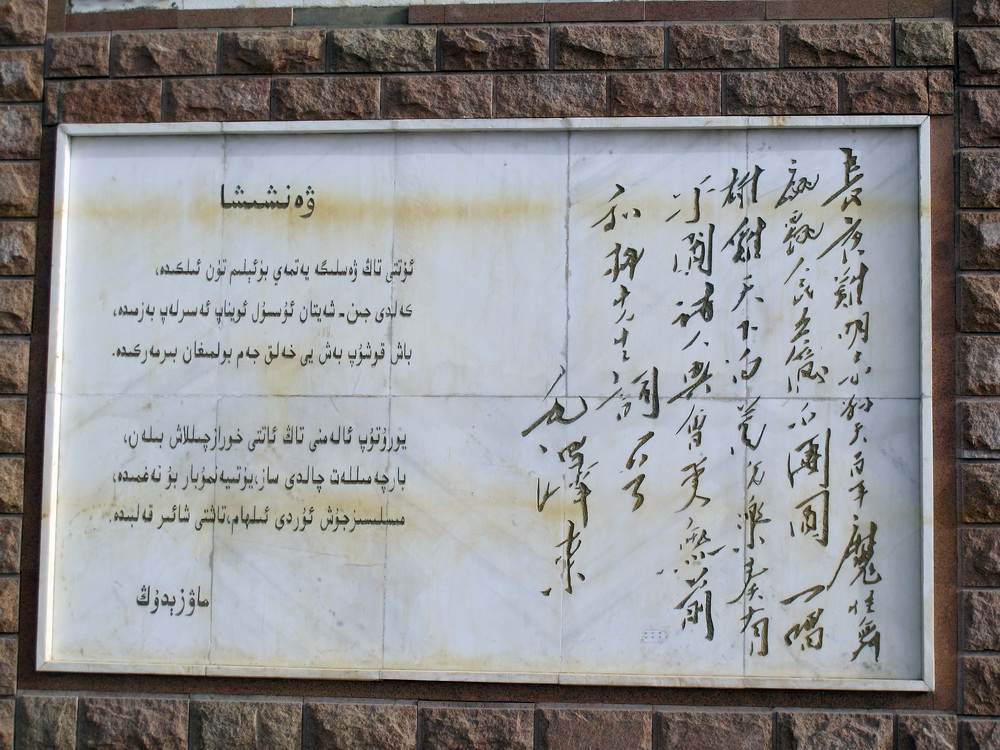 ۋەنشىشا
ئۆتتى تاڭ ۋەسلىگە يەتمەي بۇئېلىم تۈن ئىلكىدە،
كەلدى جىن-شەيتان ئۇسسۇل ئويناپ ئەسىرلەپ بەزمىدە،
باش قوشۇپ بەش يۈ خەلق جەم بولمىغان بىرمەركىدە.
يورۇتۇپ ئالەمنى تاڭ ئاتتى خورازچىللاش بىلەن،
بارچەمىللەت چالدى ساز،يۇتىيەنمۇبار بۇ نەغمىدە،
مىسلىسىزجۇش ئۇردى ئىلھام،تاشتى شائىر قەلبىدە.
ماۋزېدۇڭ
長夜難明赤縣天百年魔怪舞
翩躚人民五億不團圓一唱
雄雞天下白萬方樂奏有
于闐詩人興會更無前
和柳先生詞
毛澤東